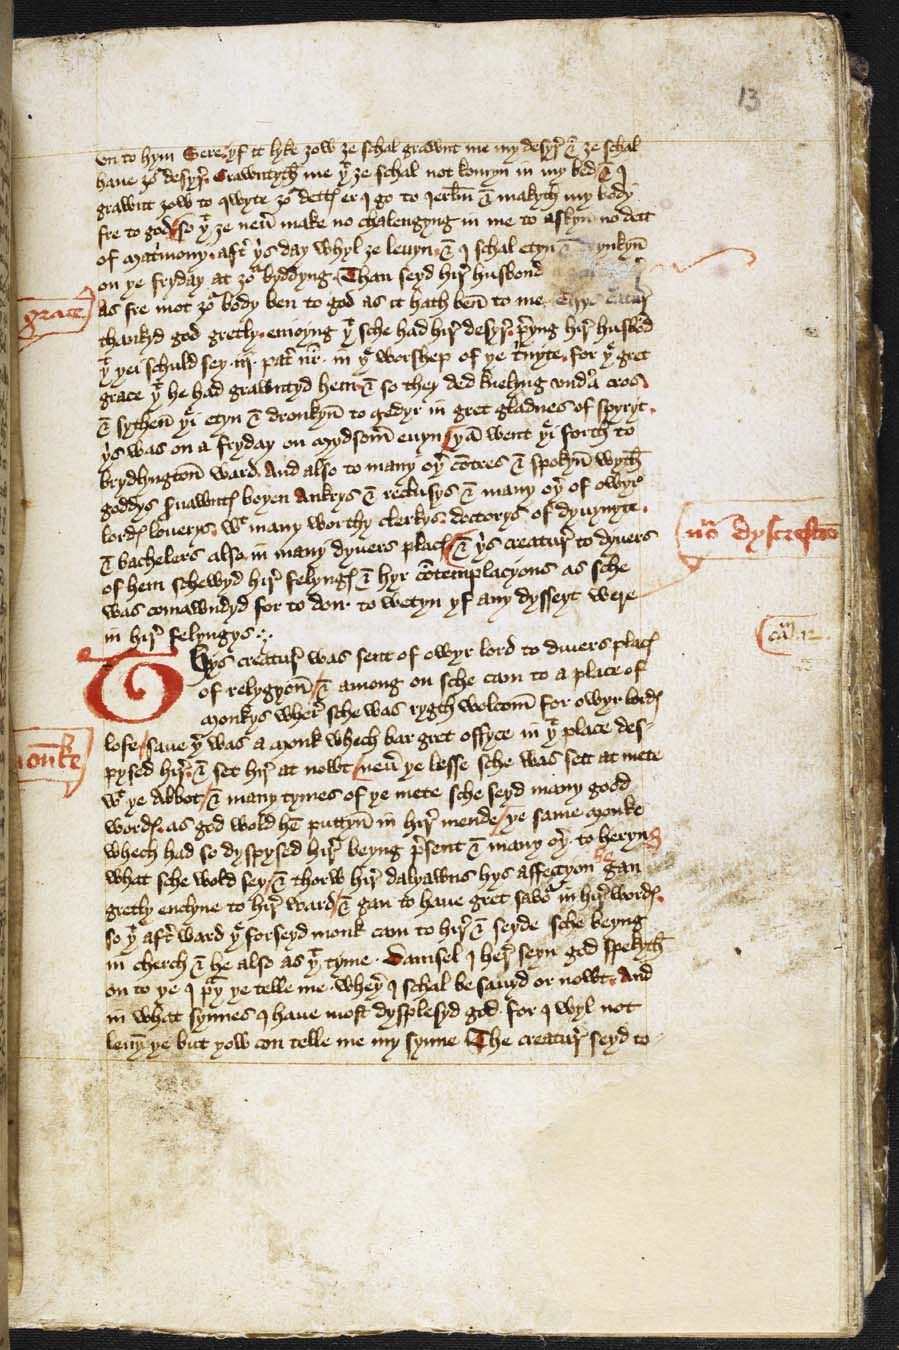 13
un to hym Sere yf it lyke ȝow ȝe schal grawnt me my desyr & ȝe schal
haue ȝor desyr. Grawntyth me yt ȝe schal not komyn in my bed & I
grawnt ȝow to qwyte ȝor dettes er I go to Ierlm̄ & makyth my body
fre to god so yt ȝe neuer make no chalengyng in me to askyn no dett
of matrimony aftr ys day whyl ȝe leuyn & I schal etyn & drynkyn
on ye fryday at ȝor byddyng. Than seyd hir husbond
as fre mot ȝor body ben to god as it hath ben to me
grace
thankyd god gretly enioyng yt sche had hir desyr. preyng hir husbond
yt yei schuld sey iij patr nr̄ in ye worshep of ye trinyte for ye gret
grace yt he had grawntyd hem & so they ded knelyng vndr a cros
& sythen yei etyn & dronkyn to gedyr in gret gladnes of spyryt.
ys was on a fryday on mydsomr euyn yan went yei forth to
brydlyngton ward And also to many oyr cōtres & spokyn wyth
goddys seruawntes boyen Ankrys & reclusys & many oyr of owyr
lordes louerys. wt many worthy clerkys. doctorys of dyuynyte.
& bachelers also in many dyuers places & ys creatur to dyuers
nō dyscrescōn
of hem schewyd hir felynges & hyr cōtemplacyons as sche
was comawndyd for to don to wetyn yf any dysseyt were
in hir felyngys
cam 12.
Thys creatur was sent of owyr lord to diuers places
of relygyon & among on sche cam to a place of
monkys wher sche was rygth wolcom for owyr lordes
lofe saue yr was a monk whech bar gret offyce in yt place des-
monke
pysed hir & set hir at nowt neuer ye lesse sche was sett at mete
wt ye Abbot & many tymes of ye mete sche seyd many good
wordes as god wold hē puttyn in hir mende ye same monke
whech had so dyspysed hir beyng present & many oyr to heryng
what sche wold sey & thorw hir dalyawns hys affeccyon be gan
gretly enclyne to hir ward & gan to haue gret sauor in hir wordes.
so yt aftr ward ye forseyd monk cam to hir & seyde sche beyng
in cherch & he also as yt tyme. Damsel I her seyn god spekyth
on to ye I prey ye telle me wheyr I schal be sauyd or nowt. And
in what synnes I haue most dysplesyd god for I wyl not
leuyn ye but yow con telle me my synne The creatur seyd to